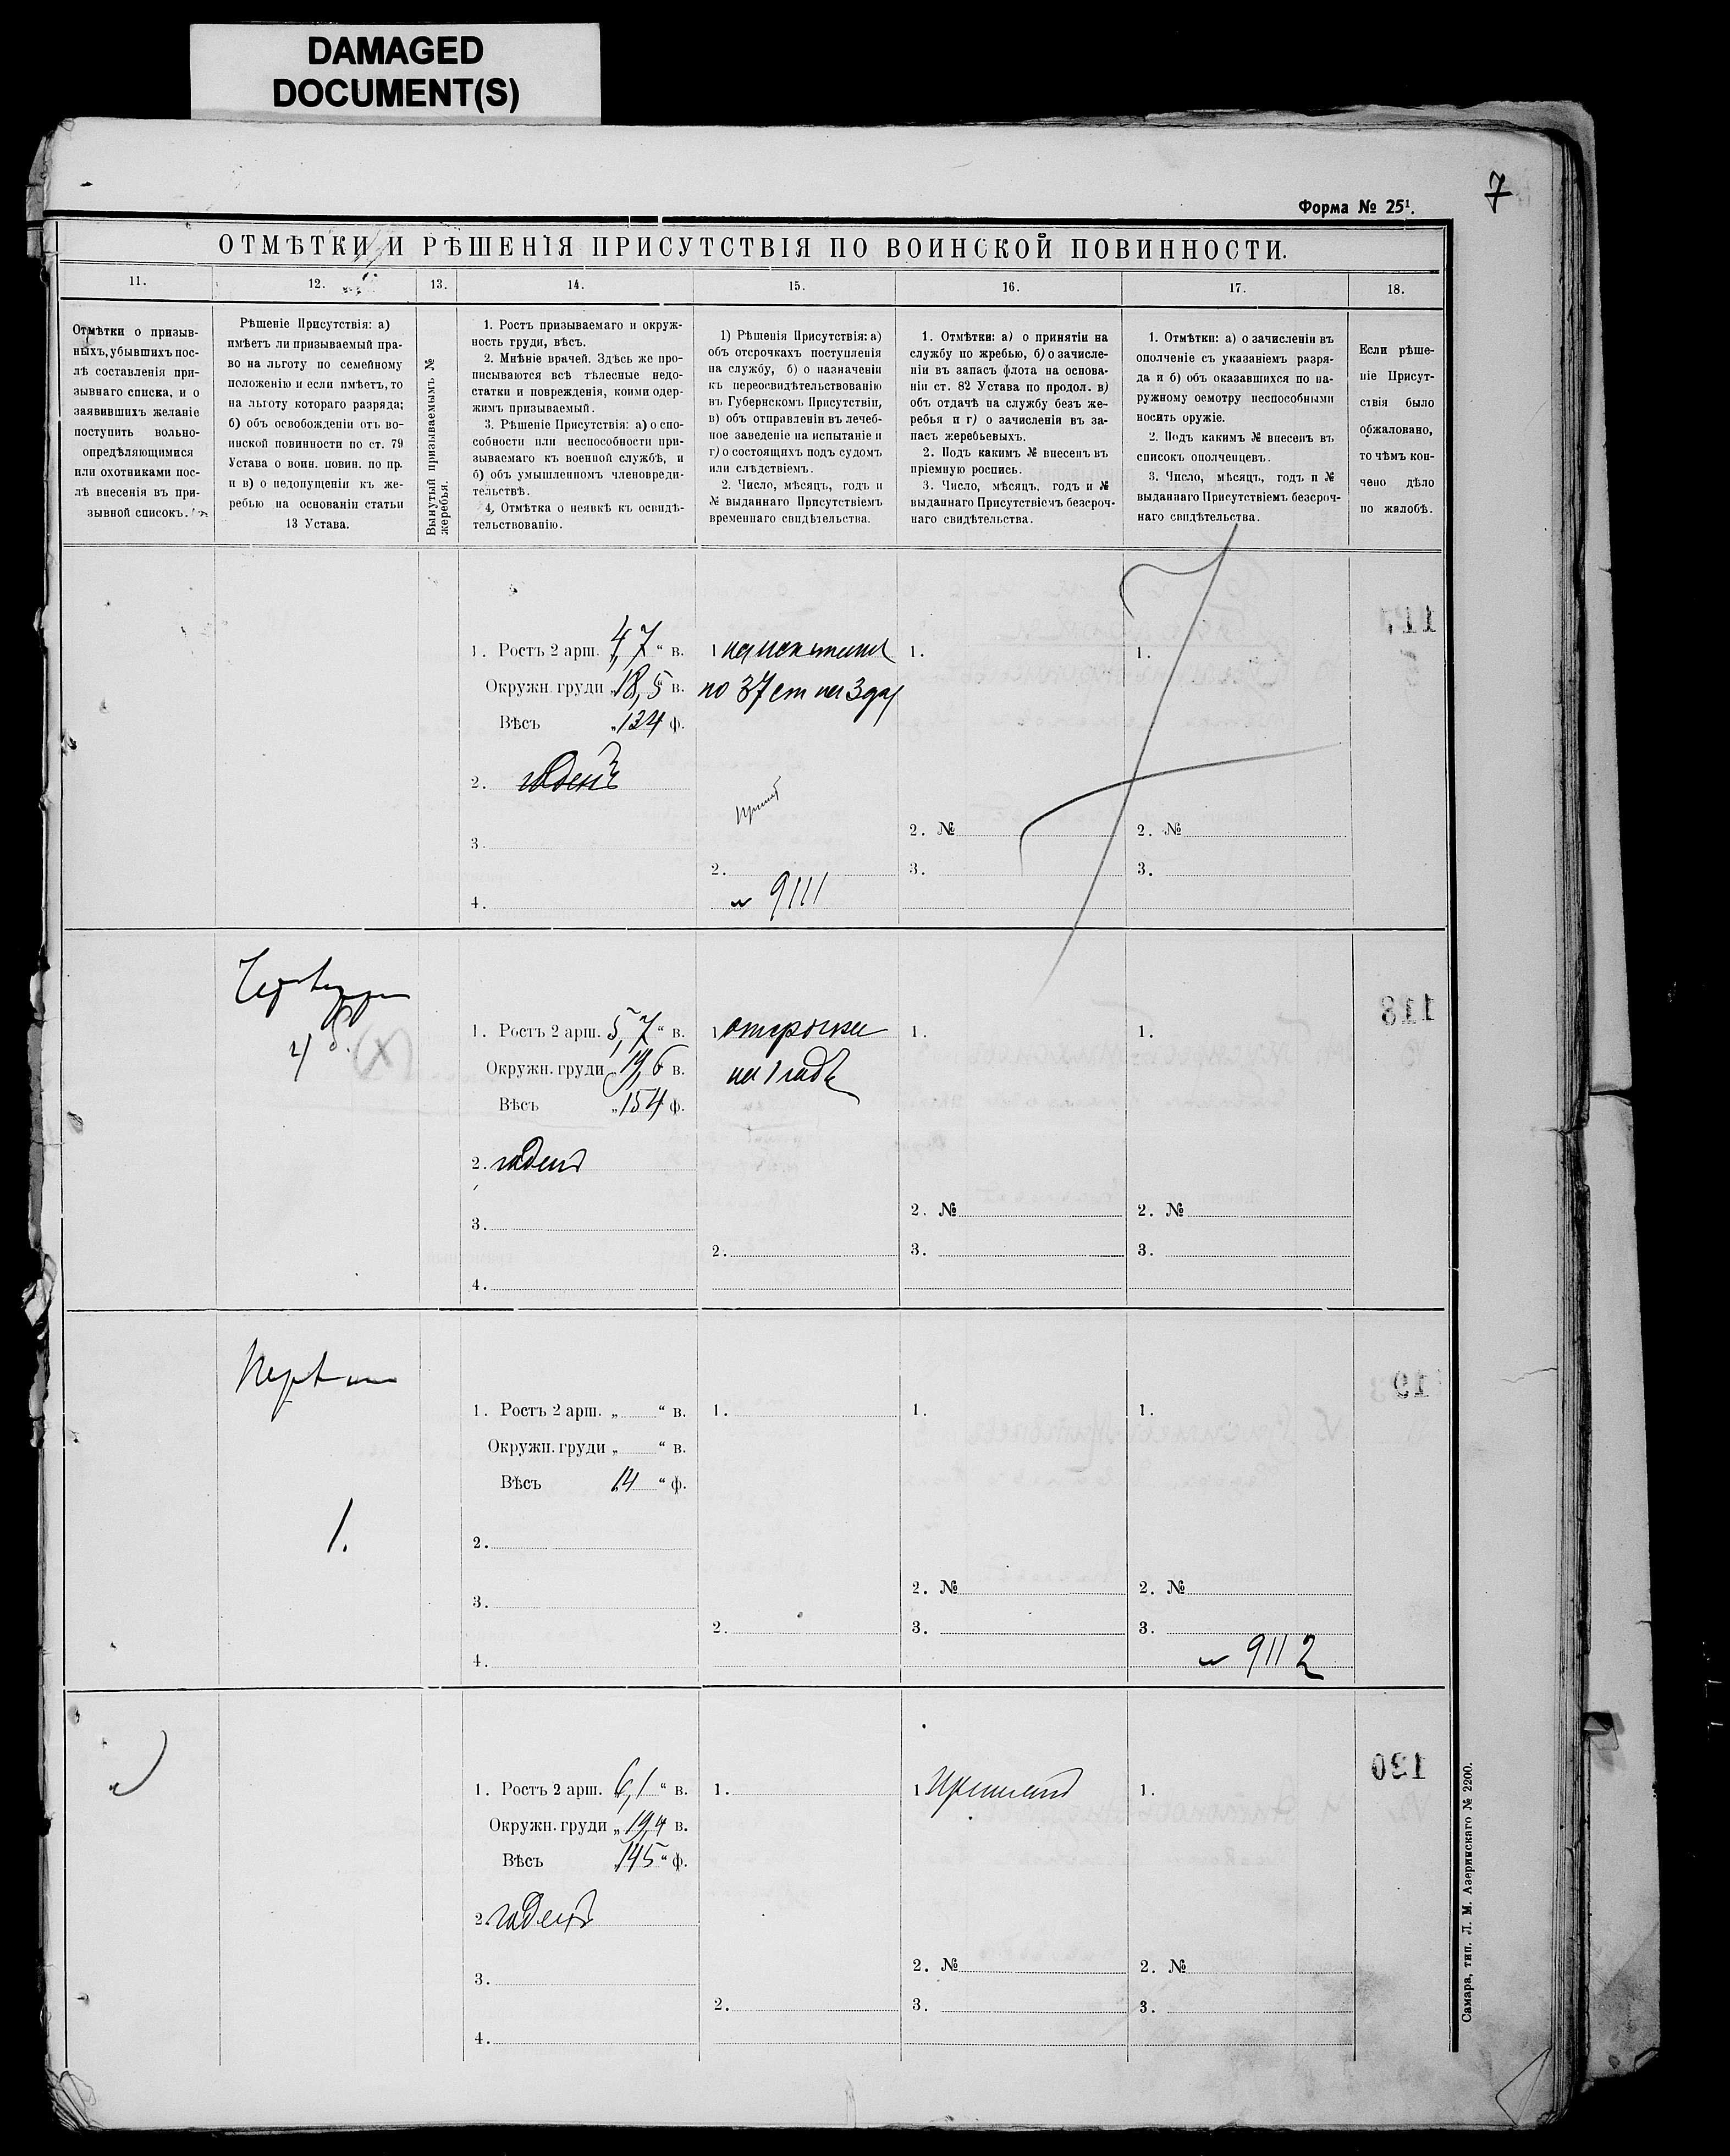 DAMAGED
DOCUMENT(S)
7
Форма № 25¹.
ОТМѢТКИ И РѢШЕНІЯ ПРИСУТСТВІЯ ПО ВОИНСКОЙ ПОВИННОСТИ.
11.
12.
13.
14.
15.
16.
17.
18.
Отмѣтки о призыв-
ныхъ, убывшихъ пос-
лѣ составленія при-
зывнаго списка, и о
заявившихъ желаніе
поступить вольно-
опредѣляющимися
или охотниками пос-
лѣ внесенія въ при-
зывной списокъ.
Рѣшеніе Присутствія: а)
имѣетъ ли призываемый пра-
во на льготу по семейному
положенію и если имѣетъ, то
на льготу котораго разряда;
б) объ освобожденіи отъ во-
инской повинности по ст. 79
Устава о воин. повин. по пр.
и в) о недопущеніи къ же-
ребью на основаніи статьи
13 Устава.
Вынутый призываемымъ №
жеребья.
1. Ростъ призываемаго и окруж-
ность груди, вѣсъ.
2. Мнѣніе врачей. Здѣсь же про-
писываются всѣ тѣлесные недо-
статки и поврежденія, коими одер-
жимъ призываемый.
3. Рѣшеніе Присутствія: а) о спо-
собности или неспособности при-
зываемаго къ военной службѣ, и
б) объ умышленномъ членовреди-
тельствѣ.
4. Отмѣтка о неявкѣ къ освидѣ-
тельствованію.
1) Рѣшенія Присутствія: а)
объ отсрочкахъ поступленія
на службу, б) о назначеніи
къ переосвидѣтельствованію
въ Губернскомъ Присутствіи,
в) объ отправленіи въ лечеб-
ное заведеніе на испытаніе и
г) о состоящихъ подъ судомъ
или слѣдствіемъ.
2. Число, мѣсяцъ, годъ и
№ выданнаго Присутствіемъ
временнаго свидѣтельства.
1. Отмѣтки: а) о принятіи на
службу по жребью, б) о зачисле-
ніи въ запасъ флота на основа-
ніи ст. 82 Устава по продол. в)
объ отдачѣ на службу безъ же-
ребья и г) о зачисленіи въ за-
пасъ жеребьевыхъ.
2. Подъ какимъ № внесенъ въ
пріемную роспись.
3. Число, мѣсяцъ, годъ и №
выданнаго Присутствіемъ безсроч-
наго свидѣтельства.
1. Отмѣтки: а) о зачисленіи въ
ополченіе съ указаніемъ разря-
да и б) объ оказавшихся по на-
ружному осмотру неспособными
носить оружіе.
2. Подъ какимъ № внесенъ въ
списокъ ополченцевъ.
3. Число, мѣсяцъ, годъ и №
выданнаго Присутствіемъ безсроч-
наго свидѣтельства.
Если рѣше-
ніе Присут-
ствія было
обжаловано,
то чѣмъ кон-
чено дѣло
по жалобѣ.
1. Ростъ 2 арш. 4,7 " в.
Окружн. груди „18,5 в.
Вѣсъ „134 ф.
2. годенъ
3.
4.
1
по 37 ст на 3
2.
9111
1.
2. №
3.
1.
2. №
3.
1. Ростъ 2 арш. 5,7 " в.
Окружн. груди „19,6 в.
Вѣсъ „154 ф.
2. годенъ
3.
4.
1 отсрочка
на 1 годъ
2.
1.
2. №
3.
1.
2. №
3.
118
1.
1. Ростъ 2 арш. „ " в.
Окружн. груди „ " в.
Вѣсъ 14 " ф.
2.
3.
4.
1.
2.
1.
2. №
3.
1.
2. №
3.
9112
1. Ростъ 2 арш. 6,1 " в.
Окружн. груди „19,4 в.
Вѣсъ 145 " ф.
2. годенъ
3.
4.
1.
2.
1
2. №
3.
1.
2. №
3.
Самара, тип. Л. М. Азеринскаго № 2200.